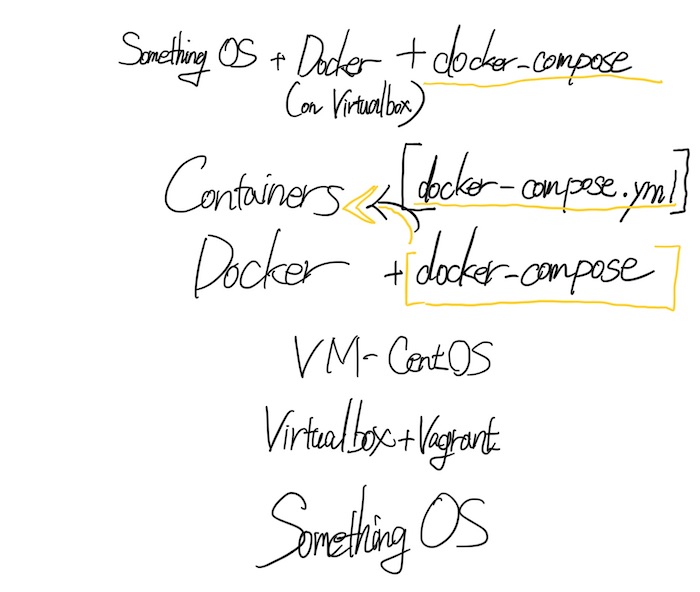 Something OS + Docker + docker-compose
(on Virtualbox)
Containers [docker-compose.yml]
Docker + docker-compose
VM-CentOS
Virtualbox+Vagrant
Something OS